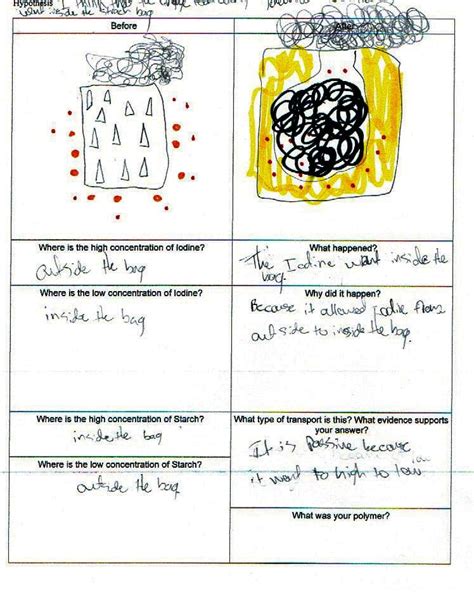 Hypothesis I think that the
went inside the starch bag
Before
After
Where is the high concentration of Iodine?
outside the bag
What happened?
The Iodine went inside the
bag.
Where is the low concentration of Iodine?
inside the bag
Why did it happen?
Because it allowed Iodine from
outside to inside the bag.
Where is the high concentration of Starch?
inside the bag
What type of transport is this? What evidence supports
your answer?
It is Passive because
it went to high to low
Where is the low concentration of Starch?
outside the bag
What was your polymer?